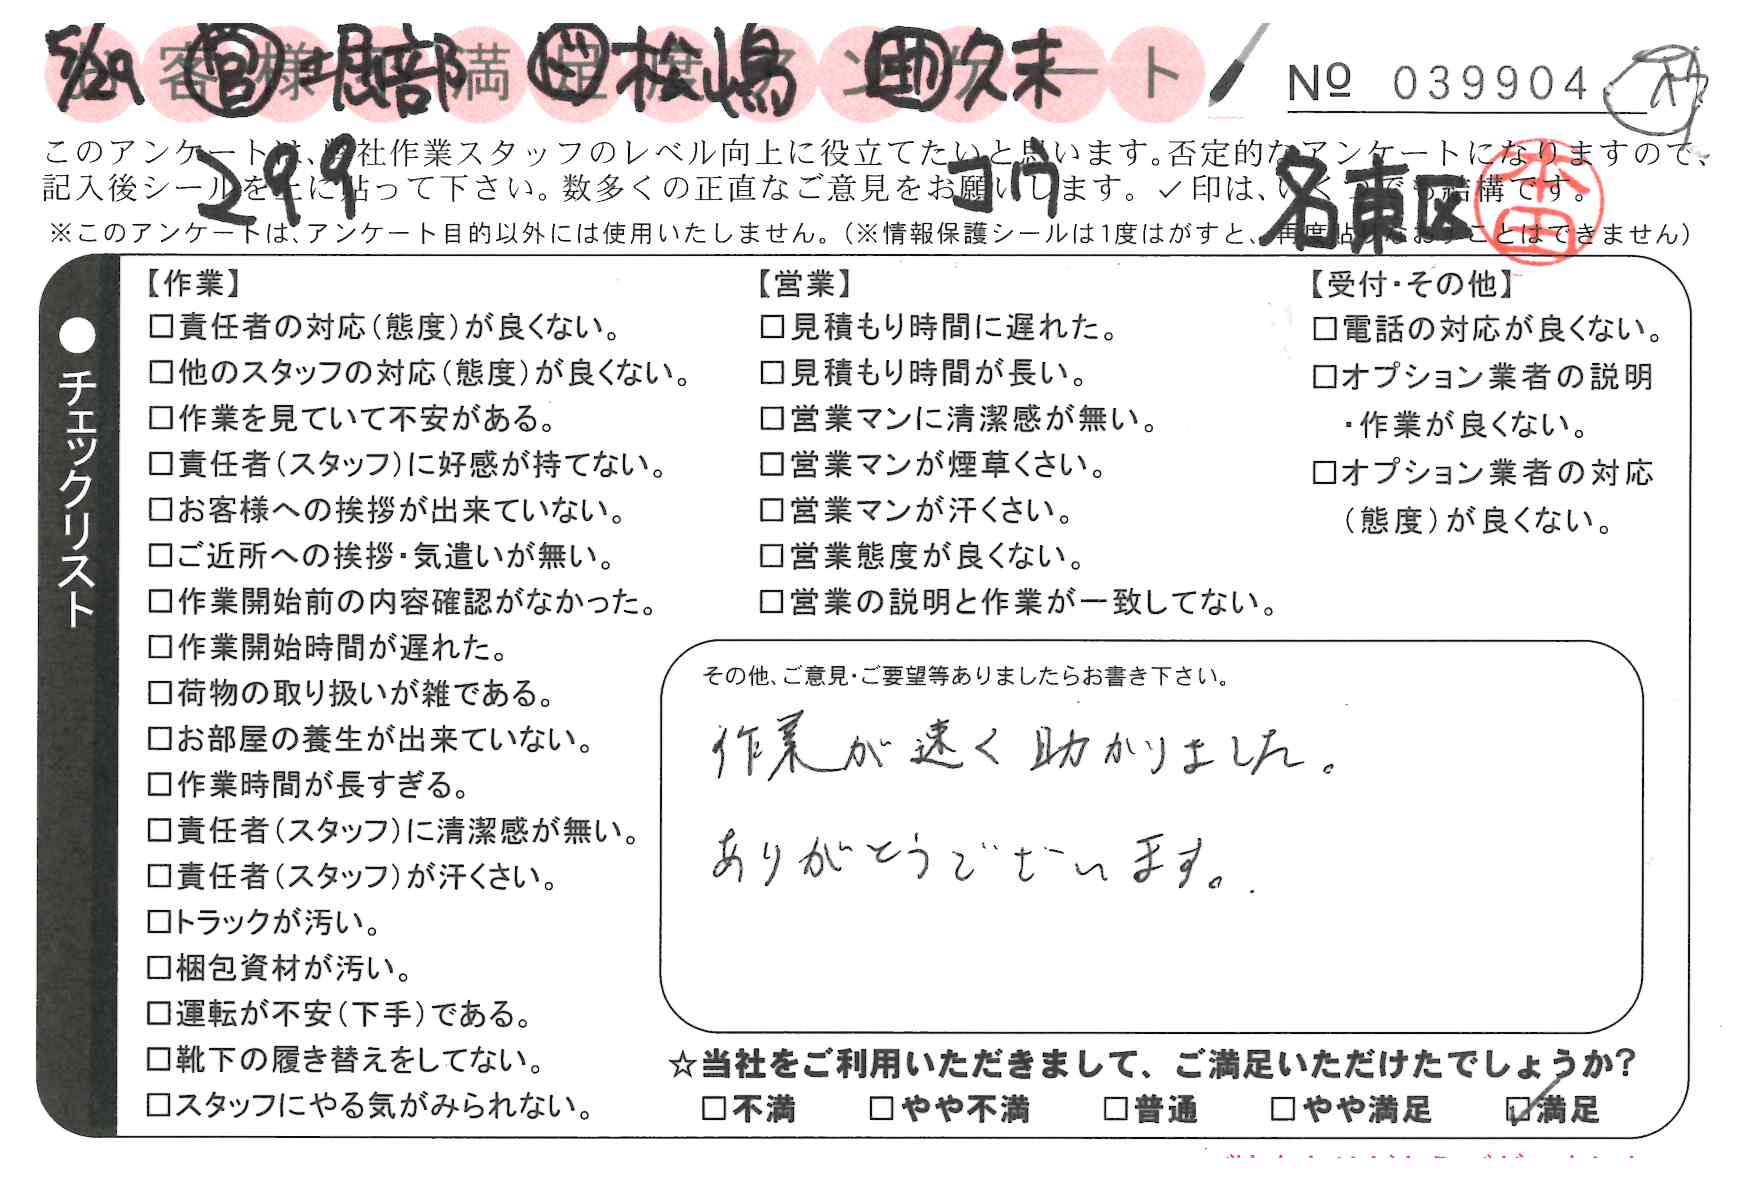 5/29 官 堀部 ド 松嶋 助 久末
お客様満足度アンケート
№ 039904
このアンケートは、当社作業スタッフのレベル向上に役立てたいと思います。否定的なアンケートになりますので、
299 コウ 名東区 本田
記入後シールを上に貼って下さい。数多くの正直なご意見をお願いします。✓印は、いくつでも結構です。
※このアンケートは、アンケート目的以外には使用いたしません。（※情報保護シールは1度はがすと、再度貼りなおすことはできません）
●チェックリスト
【作業】
□責任者の対応（態度）が良くない。
□他のスタッフの対応（態度）が良くない。
□作業を見ていて不安がある。
□責任者（スタッフ）に好感が持てない。
□お客様への挨拶が出来ていない。
□ご近所への挨拶・気遣いが無い。
□作業開始前の内容確認がなかった。
□作業開始時間が遅れた。
□荷物の取り扱いが雑である。
□お部屋の養生が出来ていない。
□作業時間が長すぎる。
□責任者（スタッフ）に清潔感が無い。
□責任者（スタッフ）が汗くさい。
□トラックが汚い。
□梱包資材が汚い。
□運転が不安（下手）である。
□靴下の履き替えをしてない。
□スタッフにやる気がみられない。
【営業】
□見積もり時間に遅れた。
□見積もり時間が長い。
□営業マンに清潔感が無い。
□営業マンが煙草くさい。
□営業マンが汗くさい。
□営業態度が良くない。
□営業の説明と作業が一致してない。
【受付・その他】
□電話の対応が良くない。
□オプション業者の説明
・作業が良くない。
□オプション業者の対応
（態度）が良くない。
その他、ご意見・ご要望等ありましたらお書き下さい。
作業が速く助かりました。
ありがとうございます。
☆当社をご利用いただきまして、ご満足いただけたでしょうか?
□不満 □やや不満 □普通 □やや満足 ☑満足